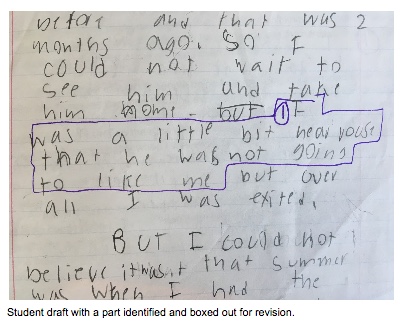 before and that was 2
months ago. So I
could not wait to
see him and take
him home. but ① I
was a little bit nearvouse
that he was not going
to like me but over
all I was exited.
BUT I could not
believe it was.t that summer
was when I had the
Student draft with a part identified and boxed out for revision.